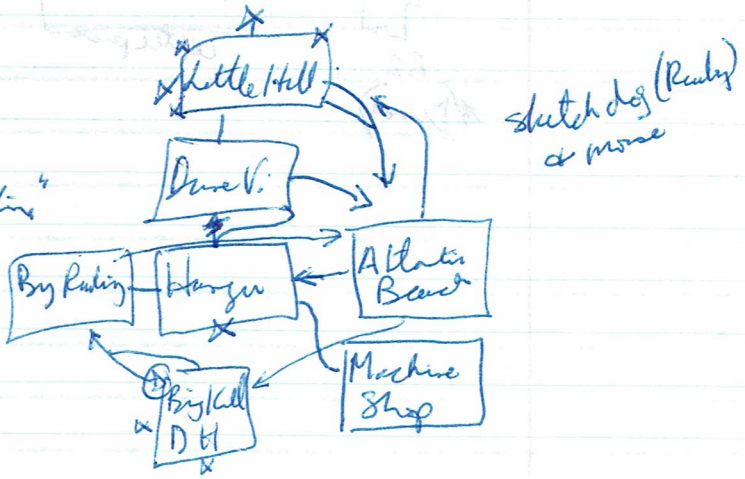 Little Hill
sketch dog (Rauby)
or mouse
Dune Vi.
Big
Hanger
Atlantic
Beach
Machine
Shop
Big Kill
DH